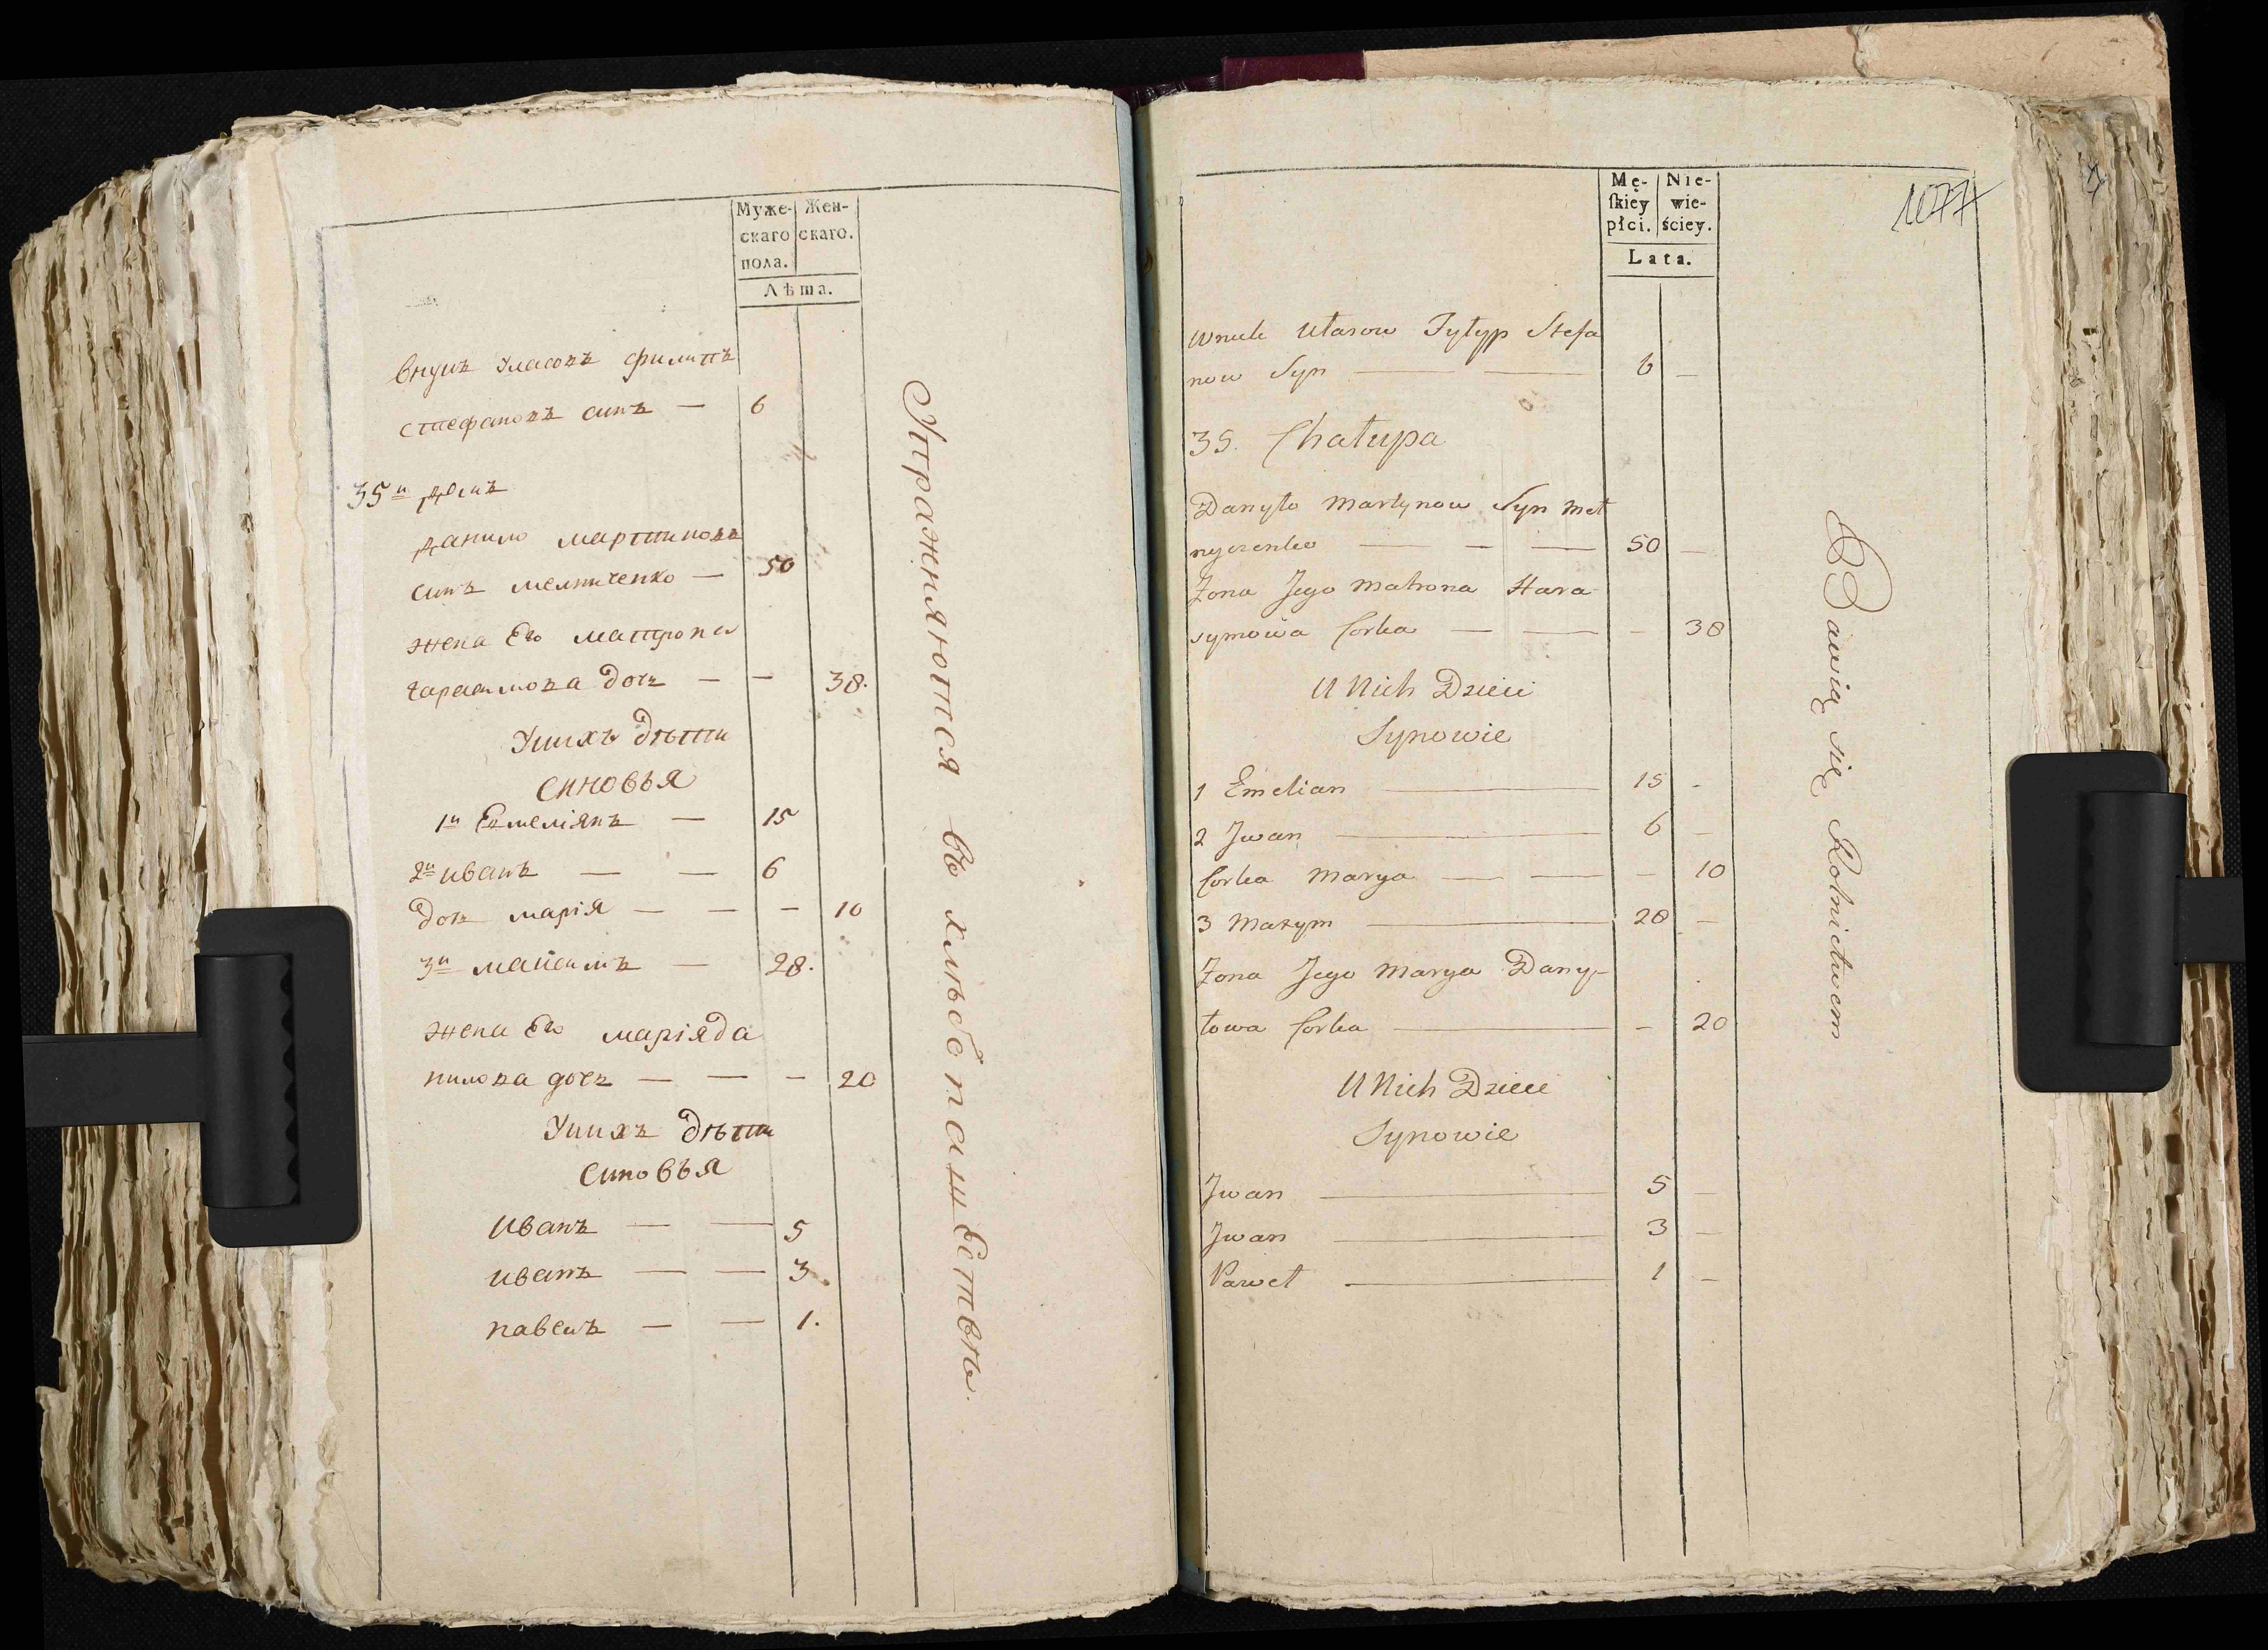 Муже-
скаго
пола.
Жен-
скаго.
Лѣта.
внукъ уласовъ филипъ
стефановъ синъ — 6
35й домъ
данило мартиновъ
синъ мелниченко — 50
жена Его матрона
гарасимова доч — — 38.
Унихъ дѣти
синовья
1й Емеліянъ — 15
2й иванъ — — 6
доч марія — — — 10
3й максимъ — 28.
жена Его маріяда
нилова доч — — — 20
Унихъ дѣти
синовья
Иванъ — — 5
иванъ — — 3.
павелъ — — 1.
Упражняются въ хлѣбопашествѣ.
Mę-
skiey
płci.
Nie-
wie-
ściey.
Lata.
1077
Wnuk Ułasow Fyłyp Stefa
now Syn — — 6 —
35. Chałupa
Danyło Martynow Syn Mel
nyczenko — — — 50 —
Zona Jego Matrona Hara-
symowa Corka — — — 38
U Nich Dzieci
Synowie
1 Emelian — 15 -
2 Jwan — 6 —
Corka Marya — — — 10
3 Maxym — 28 —
Zona Jego Marya Dany-
łowa Corka — — 20
U Nich Dzieci
Synowie
Jwan — 5 —
Jwan — 3 —
Paweł — 1 —
Bawią się Rolnictwem